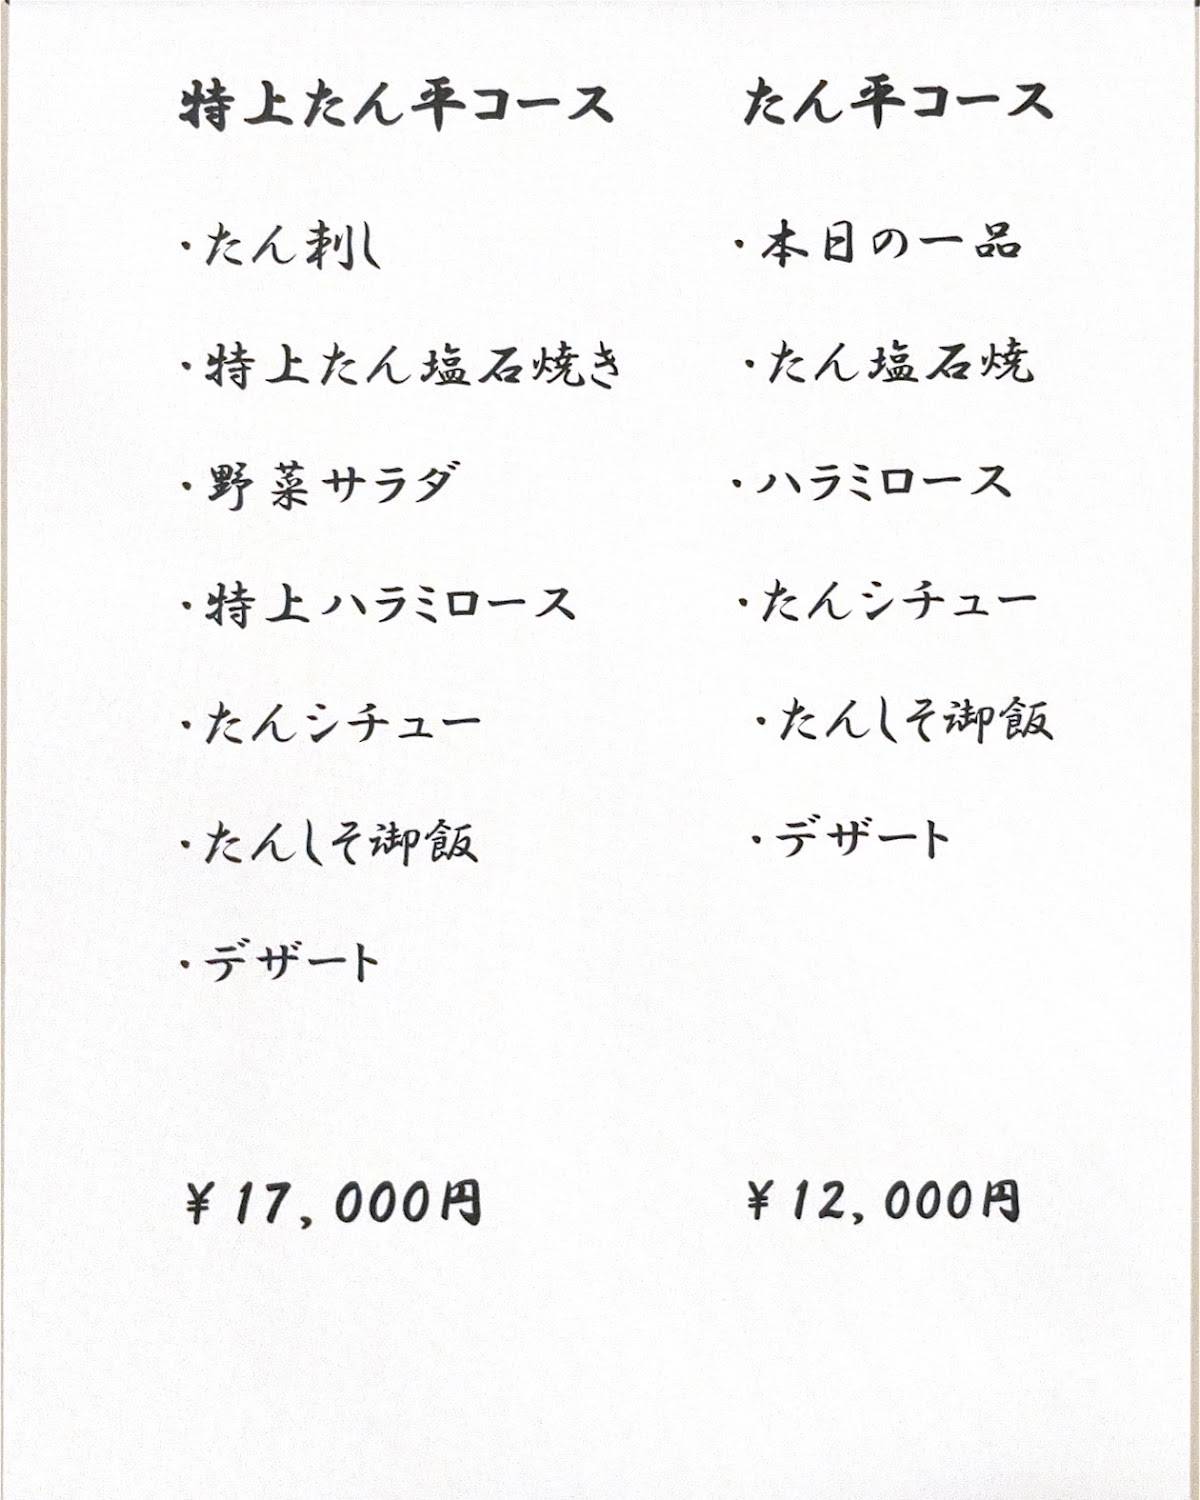 特上たん平コース
・たん刺し
・特上たん塩石焼き
・野菜サラダ
・特上ハラミロース
・たんシチュー
・たんしそ御飯
・デザート
¥17,000円
たん平コース
・本日の一品
・たん塩石焼
・ハラミロース
・たんシチュー
・たんしそ御飯
・デザート
¥12,000円